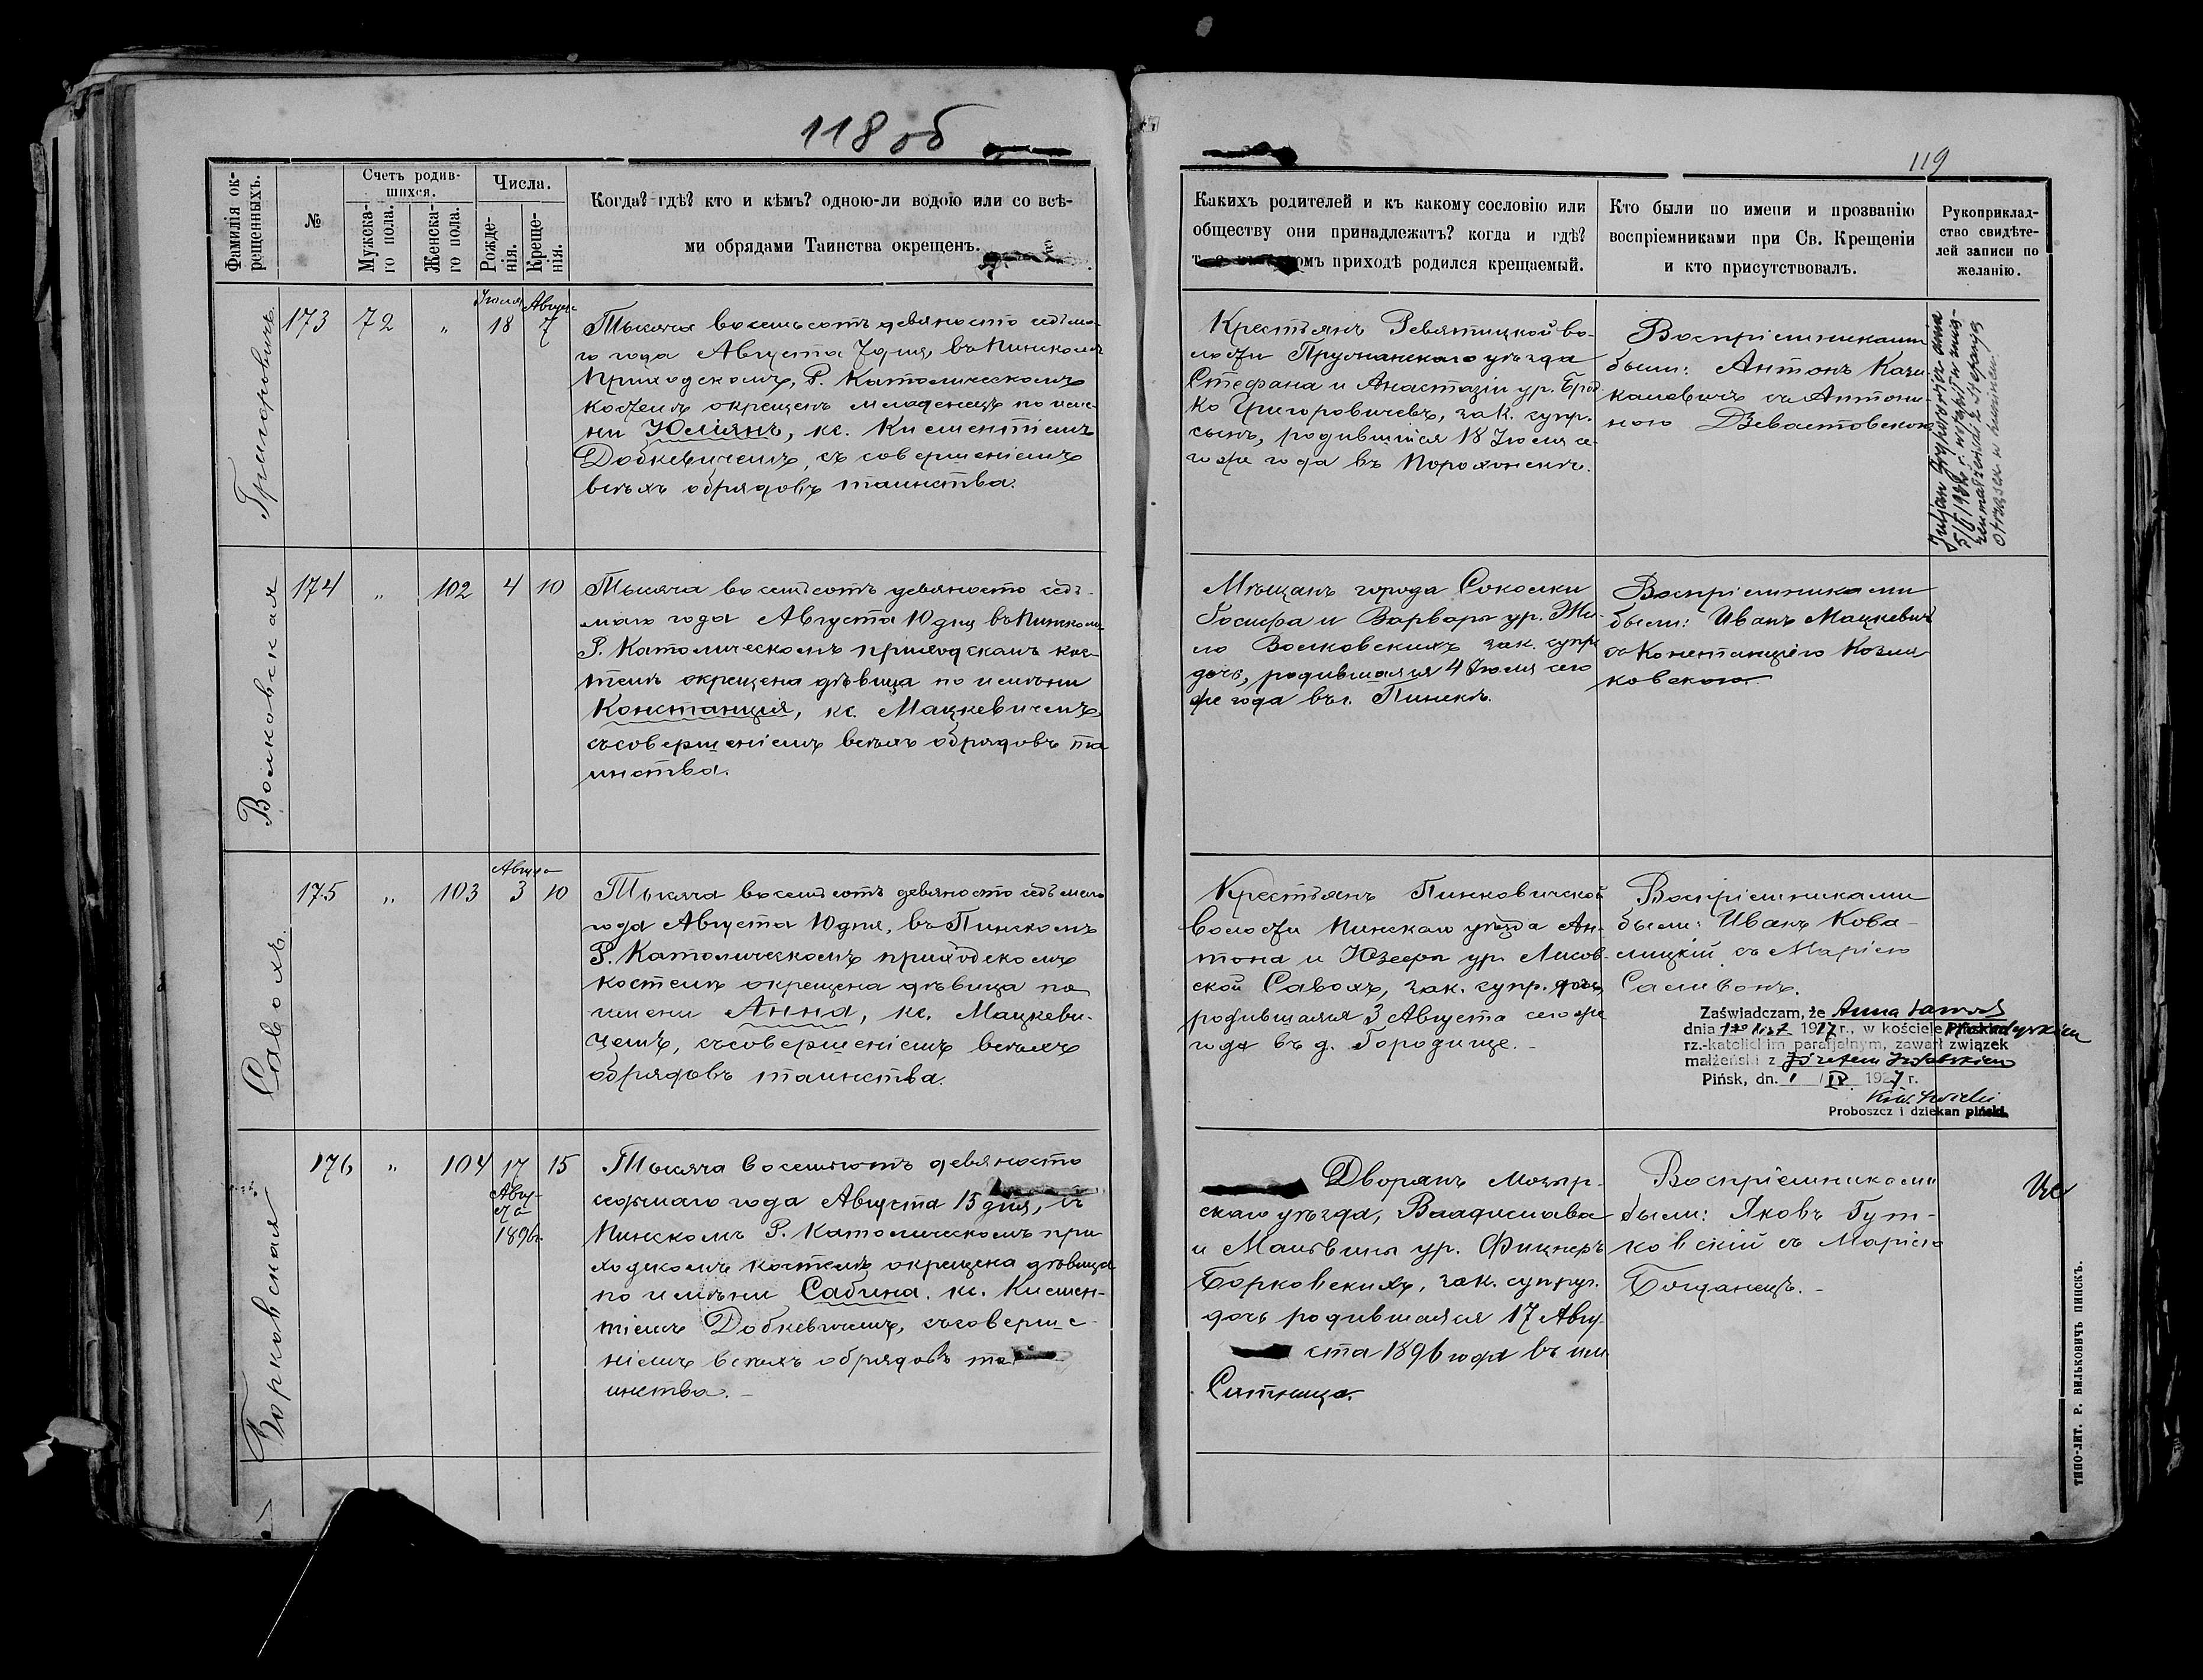 118 об
119
Фамилія ок-
рещенныхъ.
№
Счетъ родив-
шихся.
Мужска-
го пола.
Женска-
го пола.
Числа.
Рожде-
нія.
Креще-
нія.
Когда? гдѣ? кто и кѣмъ? одною-ли водою или со всѣ-
ми обрядами Таинства окрещенъ.
Какихъ родителей и къ какому сословію или
обществу они принадлежатъ? когда и гдѣ?
омъ приходѣ родился крещаемый.
Кто были по имени и прозванію
воспріемниками при Св. Крещеніи
и кто присутствовалъ.
Рукоприклад-
ство свидѣте-
лей записи по
желанію.
Григоровичъ.
173
72
"
Іюля
18
Август
7
Тысяча восемьсотъ девяносто седьма-
го года Августа 7 дня, въ Пинскомъ
Приходскомъ, Р. Католическомъ
костелѣ окрещенъ младенецъ по име-
ни Юліянъ, кс. Климентіемъ
Добкевичемъ, съ совершеніемъ
всѣхъ обрядовъ таинства.
Крестьянъ Ревятицкой во-
лости Пружанскаго уѣзда
Стефана и Анастазіи ур. Брод
ко Григоровичевъ, зак. супр.
сынъ, родившійся 18 Іюля се-
гоже года въ Порохонскѣ.
Воспріемниками
были: Антонъ Кази-
каловичъ съ Антони-
ною Дзевалтовскою
Juljan Grygorowicz dnia
5/II 1936 r. w
małżeński z Stefanją
Волковская
174
"
102
4
10
Тысяча восемьсотъ девяносто седь-
маго года Августа 10 дня въ Пинском
Р. Католическомъ приходскомъ кос-
телѣ окрещена дѣвица по имени
Констанція, кс. Мацкевичемъ
съ совершеніемъ всѣхъ обрядовъ та
инства.
Мѣщанъ города Соколки
Іосифа и Варвары ур. Жи-
ло Волковскихъ зак. супр
дочь, родившаяся 4 Іюля сего
же года въ г. Пинскѣ.
Воспріемниками
были: Иванъ Мацкевич
съ Констанціею Козла
ковскою.
Савохъ.
175
"
103
Августа
3
10
Тысяча восемьсотъ девяносто седьмаго
года Августа 10 дня, въ Пинскомъ
Р. Католическомъ приходскомъ
костелѣ окрещена дѣвица по
имени Анна, кс. Мацкеви-
чемъ, съ совершеніемъ всѣхъ
обрядовъ таинства.
Крестьянъ Пинковичской
волости Пинскаго уѣзда Ан-
тона и Юзефы ур. Лисов-
ской Савохъ, зак. супр. дочь,
родившаяся 3 Августа сегоже
года въ д. Городище.
Воспріемниками
были: Иванъ Кова-
лицкій съ Маріею
Саливонъ.
Zaświadczam, że Anna
dnia 1927 r., w kościele
rz.-katolickim parafjalnym, zawarł związek
małżeński z Józefem
Pińsk, dn. 1 / IX 1927 r.
Proboszcz i dziekan piński.
Борковская
176
"
104
17
Авгу-
ста
1896г.
15
Тысяча восемьсотъ девяносто
седьмаго года Августа 15 дня, въ
Пинскомъ Р. Католическомъ при
ходскомъ костелѣ окрещена дѣвица
по имени Сабина. кс. Климен-
тіемъ Добкевичемъ, съ соверше-
ніемъ всѣхъ обрядовъ та
инства.
Дворянъ Мозыр-
скаго уѣзда, Владислава
и Мальвины ур. Фицнеръ
Борковскихъ, зак. супруг.
дочь родившаяся 17 Авгу
ста 1896 года въ им
Ситница.
Воспріемниками
были: Яковъ Гут-
ковскій съ Маріею
Боцанецъ.
ТИПО-ЛИТ. Р. ВИЛЬКОВИЧЪ ПИНСКЪ.